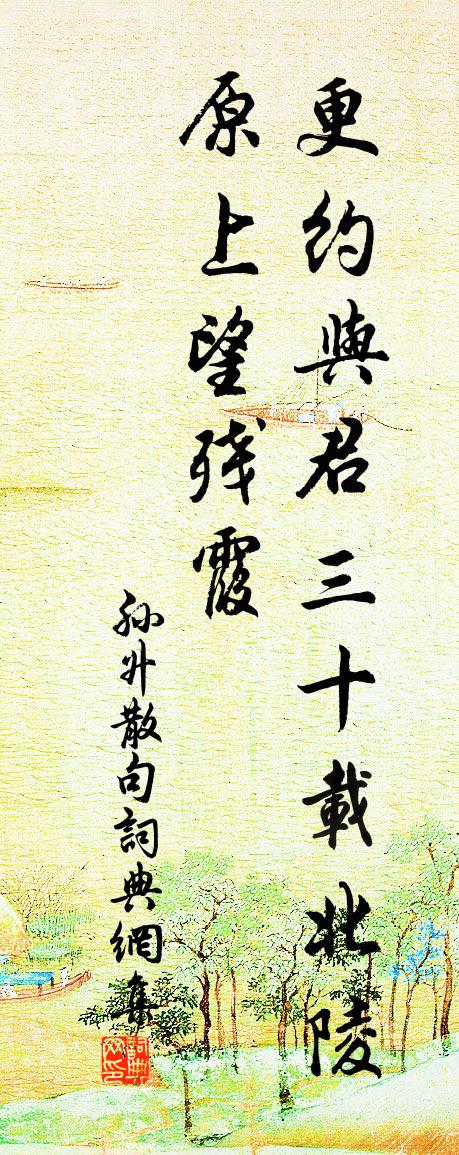 更約與君三十載北陵
原上望殘霞
孫升散句詞典網集